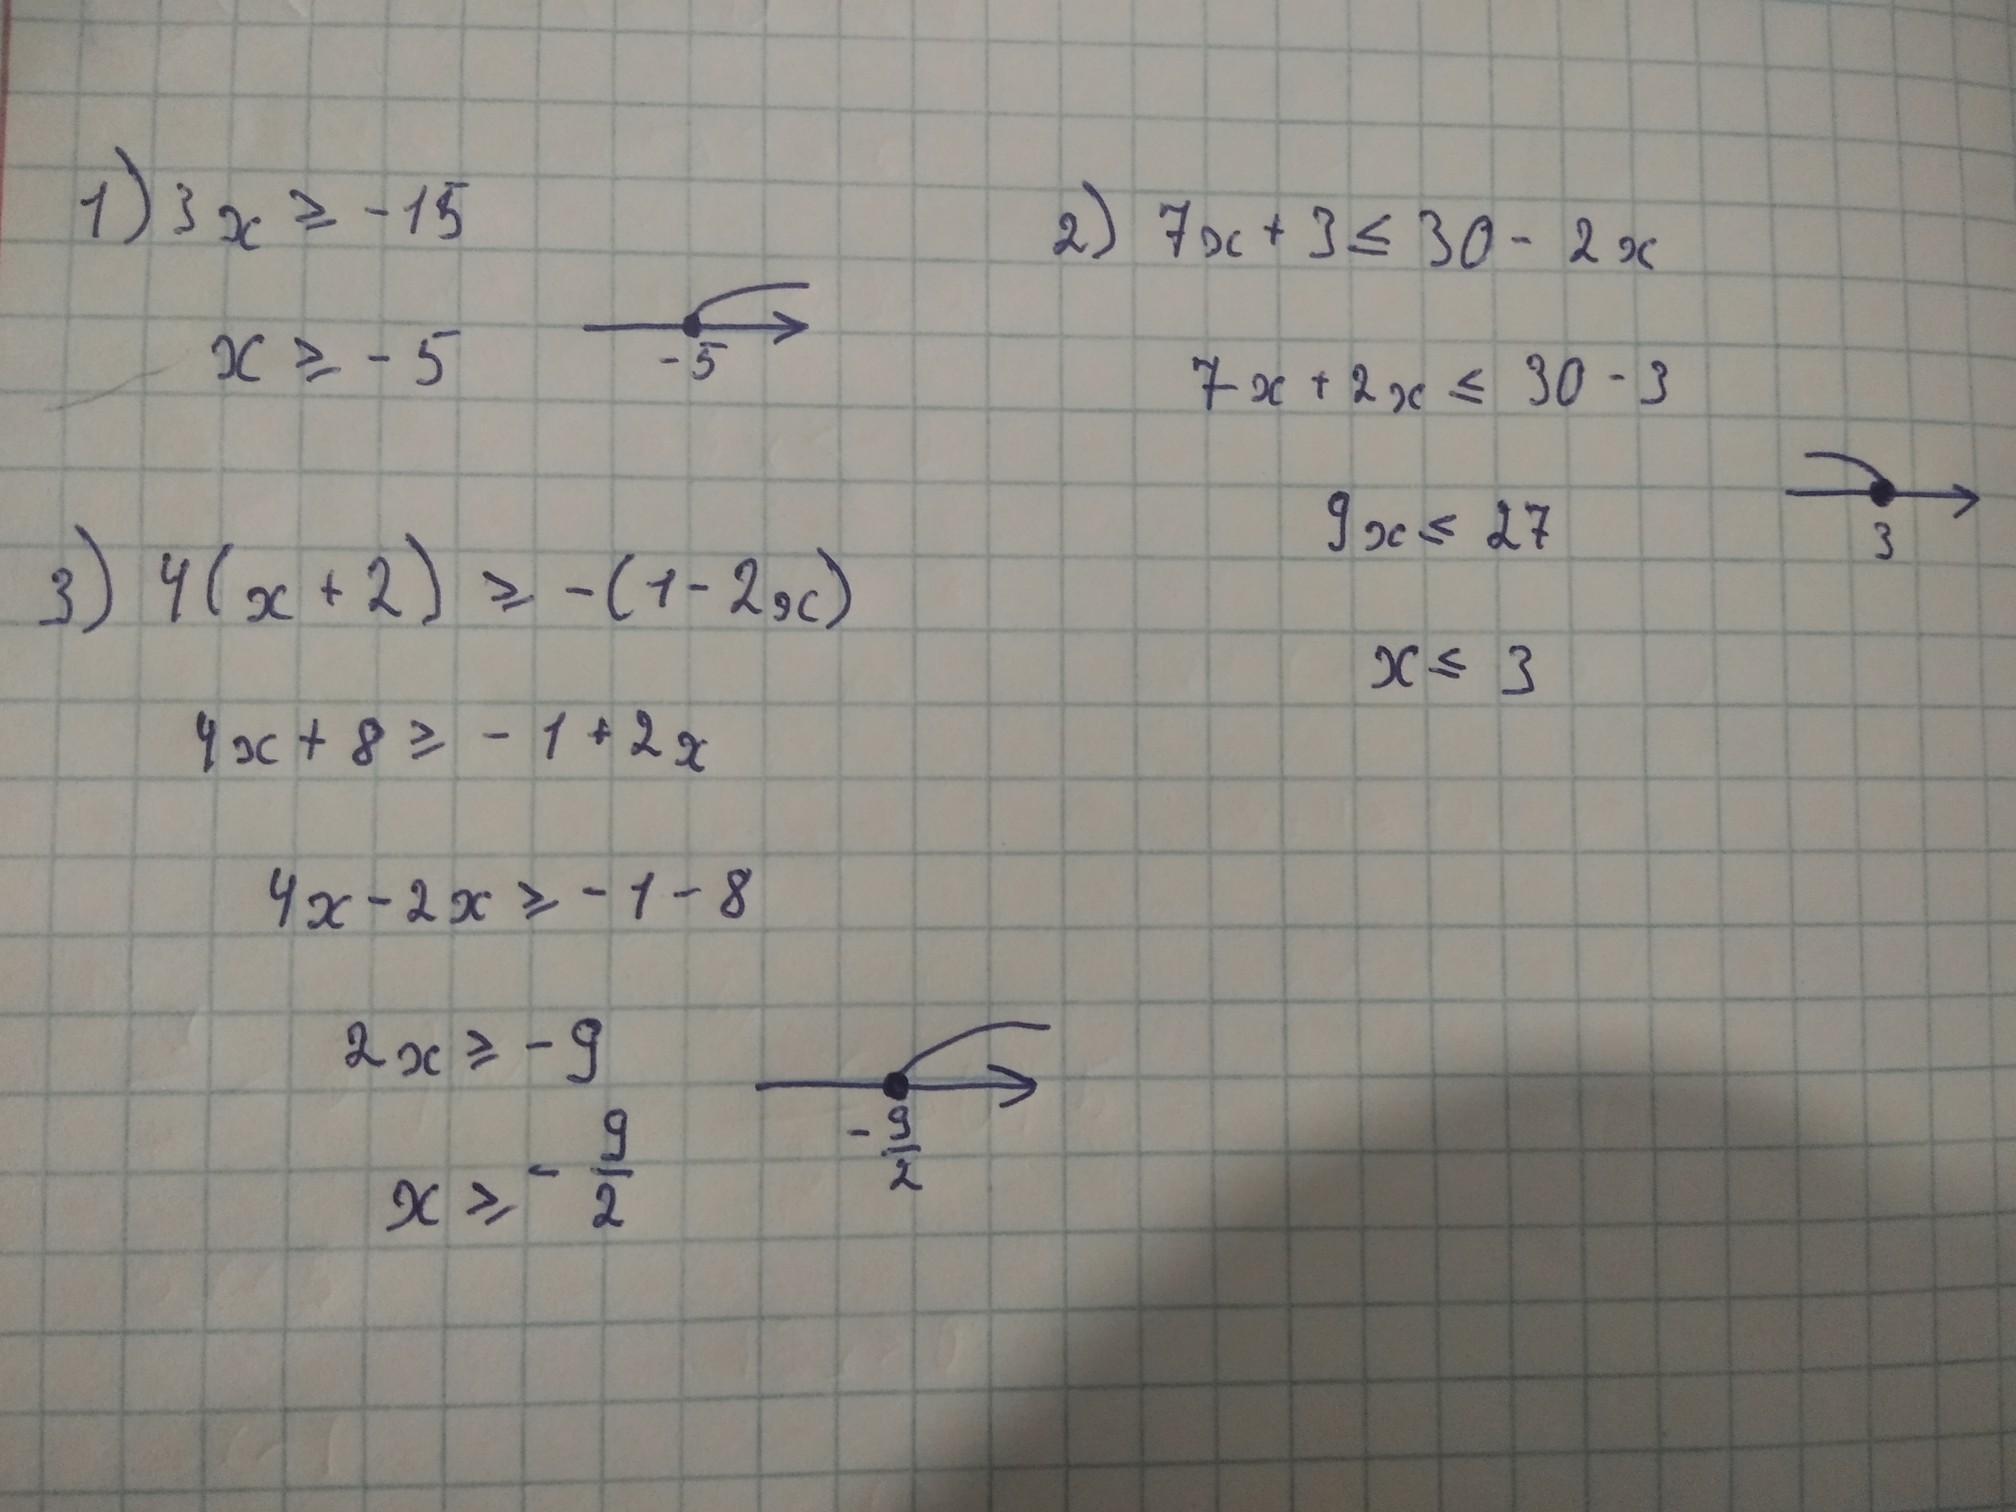 1) 3x ≥ -15
x ≥ -5
-5
2) 7x + 3 ≤ 30 - 2x
7x + 2x ≤ 30 - 3
9x ≤ 27
3
x ≤ 3
3) 4(x + 2) ≥ -(1 - 2x)
4x + 8 ≥ -1 + 2x
4x - 2x ≥ -1 - 8
2x ≥ -9
x ≥ -9/2
-9/2